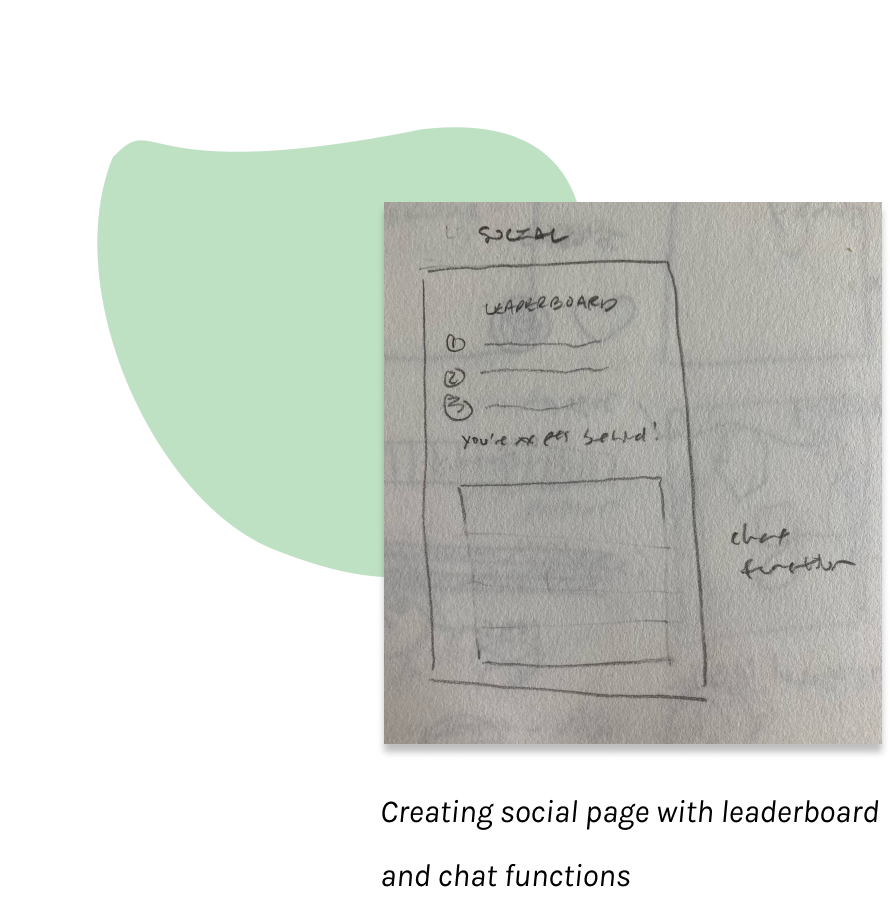 SOCIAL
LEADERBOARD
1
2
3
you're behind!
chat
function
Creating social page with leaderboard
and chat functions